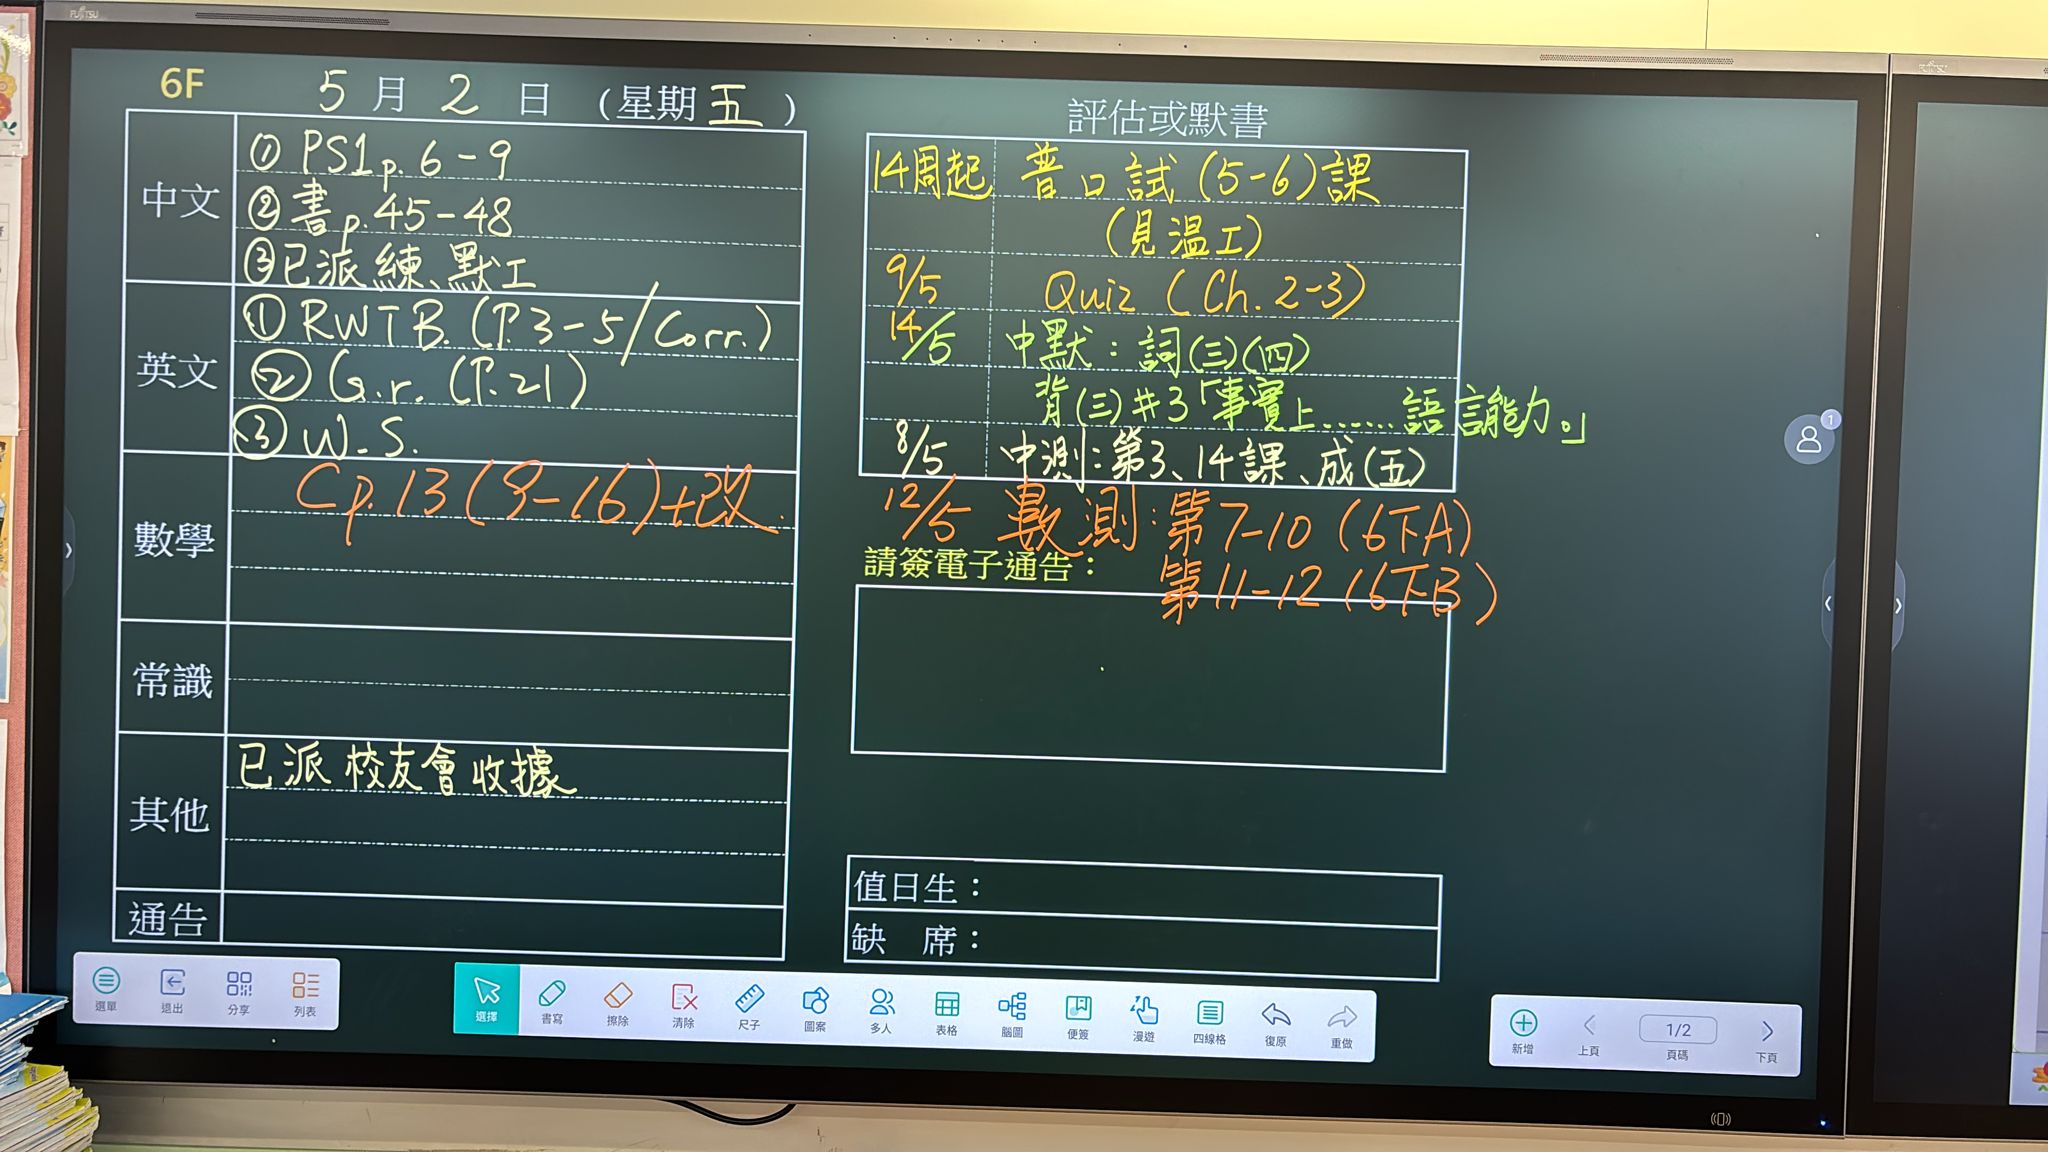 FUJITSU
6F 5月2日(星期五)
中文
① PS1 p.6-9
② 書 p.45-48
③ 已派練、默工
英文
① RWTB. (P.3-5/Corr.)
② G.r. (P.21)
③ W.S.
數學
Cp.13(9-16)+改.
常識
其他
已派校友會收據
通告
評估或默書
14周起 普口試(5-6)課
(見温工)
9/5 Quiz (Ch.2-3)
14/5 中默:詞(三)(四)
背(三)#3「事實上……語言能力。」
8/5 中測:第3、14課、成(五)
12/5 數測:第7-10(6下A)
第11-12(6下B)
請簽電子通告:
值日生:
缺 席:
1
選單 退出 分享 列表
選擇 書寫 擦除 清除 尺子 圖案 多人 表格 腦圖 便簽 漫遊 四線格 復原 重做
新增 上頁 1/2 頁碼 下頁